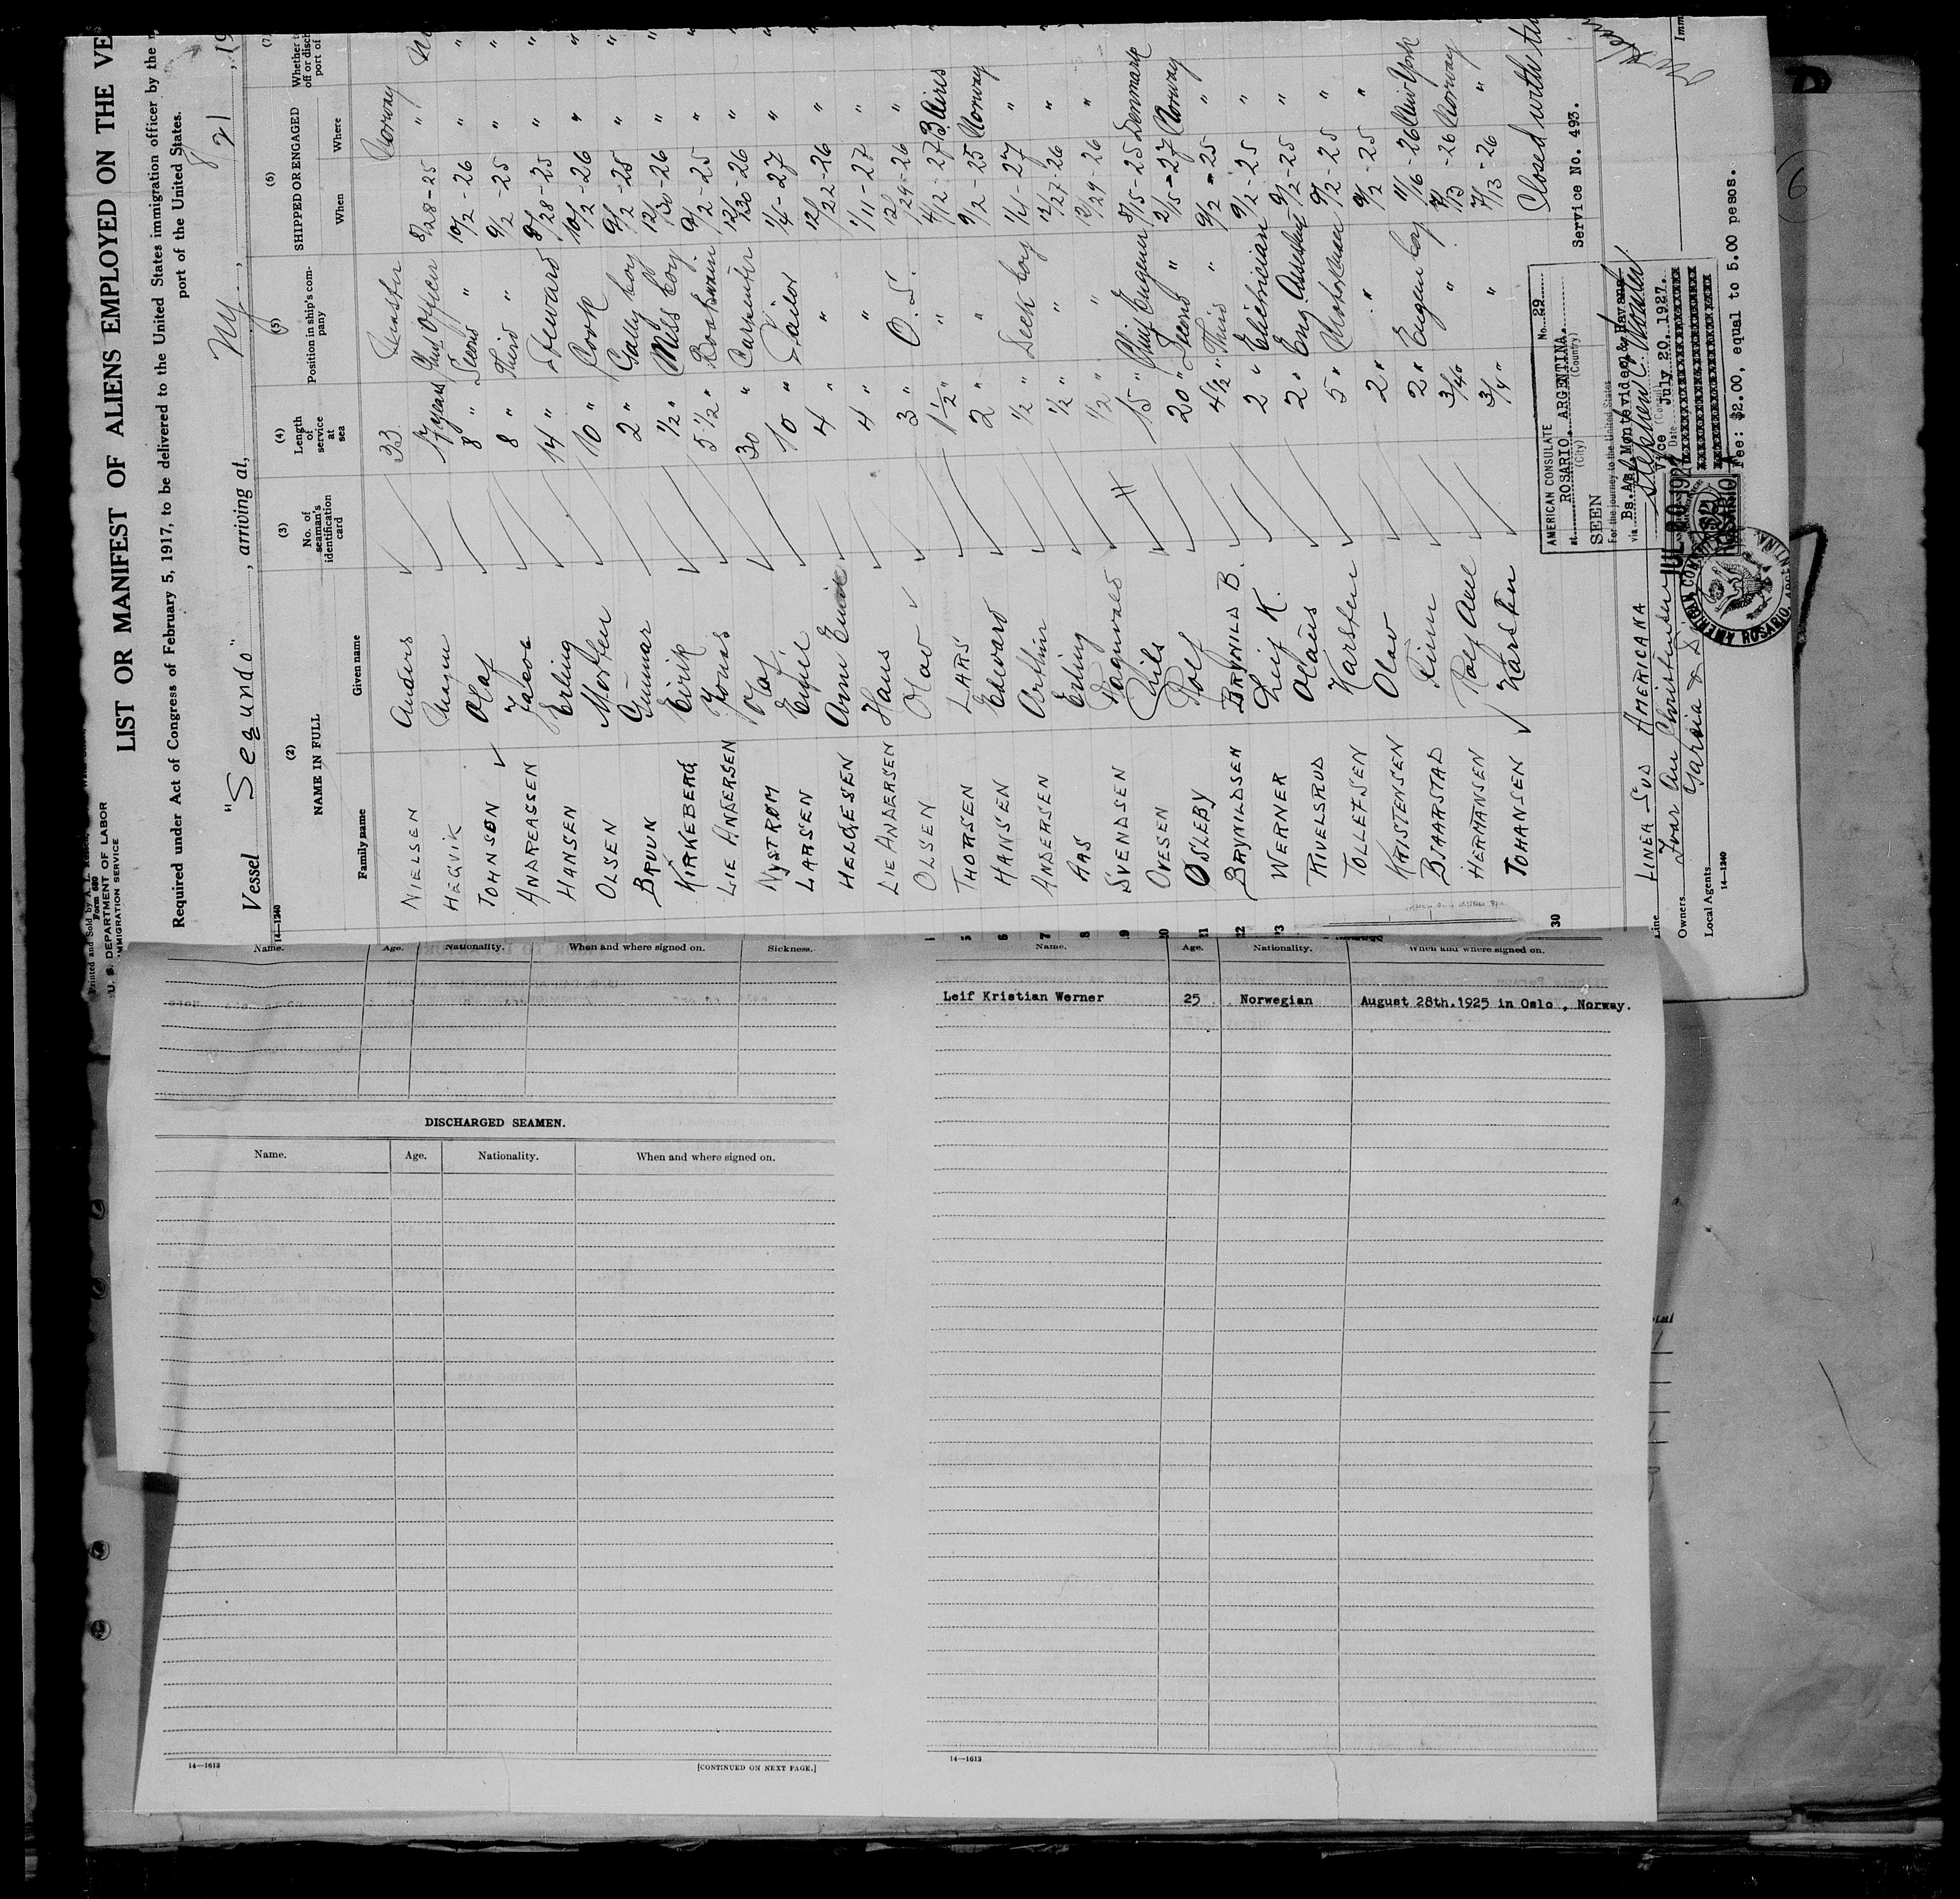 Printed and Sold by
Form 680
U. S. DEPARTMENT OF LABOR
IMMIGRATION SERVICE
LIST OR MANIFEST OF ALIENS EMPLOYED ON THE VE
Required under Act of Congress of February 5, 1917, to be delivered to the United States immigration officer by the
port of the United States.
Vessel "Segundo", arriving at, NY, 8/21, 19
14—1240
(2) (3) (4) (5) (6) (7)
NAME IN FULL No. of seaman's identification card Length of service at sea Position in ship's company SHIPPED OR ENGAGED Whether
Family name Given name When Where
NIELSEN Anders 33 Norway
HEGVIK 17 years Officer 8/28-25 "
JOHNSON Olaf 8 " Second " 10/2-26 "
ANDREASSEN Jacob 8 " Third " 9/2-25 "
HANSEN Erling 14 " Steward 8/28-25 "
OLSEN Morten 10 " Cook 10/2-26 "
BRUUN Gunnar 2 " Gally boy 9/2-25 "
KIRKEBERG Eirik 1/2 " Mess boy 12/30-26 "
LIE ANDERSEN Jonas 5 1/2 " 9/2-25 "
NYSTRØM Olaf 30 " Carpenter 12/30-26 "
LARSEN 10 " Sailor 1/4-27 "
HELGESEN Arne Einar 4 " " 12/22-26 "
LIE ANDERSEN Hans 4 " " 1/11-27 "
OLSEN Olav 3 " O.S. 12/29-26 "
THORSEN LARS 1 1/2 " " 4/12-27 B. Aires
HANSEN Edward 2 " " 9/2-25 Norway
ANDERSEN Arthur 1/2 " Deck boy 1/4-27 "
AAS Erling 1/2 " " 12/27-26 "
SVENDSEN Dagnvald 1/2 " " 12/29-26 "
OVESEN Nils 15 " Chief Engineer 8/15-25 Denmark
ØSLEBY Rolf 20 " Second " 2/15-27 Norway
BRYNILDSEN BRYNILD B. 4 1/2 " Third " 9/2-25 "
WERNER Leif K. 2 " Electrician 9/2-25 "
RIVELSRUD Olaus 2 " Eng. Assistent 9/2-25 "
TOLLEFSEN Karsten 5 " Motorman 9/2-25 "
KRISTENSEN Olav 2 " " 9/2-25 "
BJAARSTAD Finn 2 " Engine boy 11/16-26 New York
HERMANSEN Rolf 3/4 " " 7/13-26 Norway
JOHANSEN Karsten 3/4 " " 7/13-26 "
30
Closed with
AMERICAN CONSULATE No. 29
at ROSARIO, ARGENTINA.
(City) (Country)
SEEN
For the journey to the United States
via Bs. As. Montevideo & Havana
Vice (Consul)
Date July 20, 1927.
Service No. 493.
Fee: $2.00, equal to 5.00 pesos.
JUL 20 192
ROSARIO
AMERICAN CON ROSARIO, ARGENTINA
Line LINEA SUD AMERICANA
Owners Ivar An Christensen
Local Agents Garcia &
14—1240
6
Name. Age. Nationality. When and where signed on. Sickness.
DISCHARGED SEAMEN.
Name. Age. Nationality. When and where signed on.
14—1613 [CONTINUED ON NEXT PAGE.]
Name. Age. Nationality. When and where signed on.
Leif Kristian Werner 25 Norwegian August 28th.1925 in Oslo , Norway.
14—1613